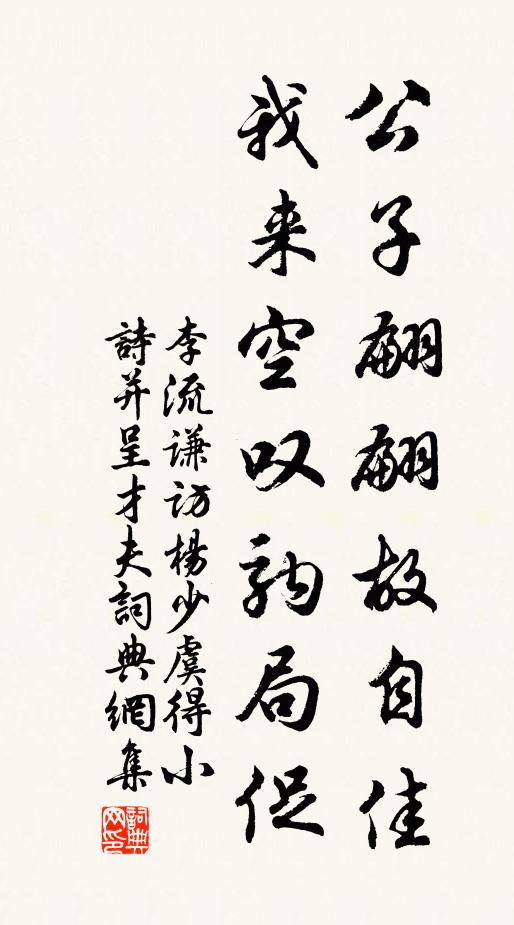 公子翩翩故自佳
我来空叹韵局促
李流谦访楊少虞得小
詩并呈才夫詞典網集
詞典网印